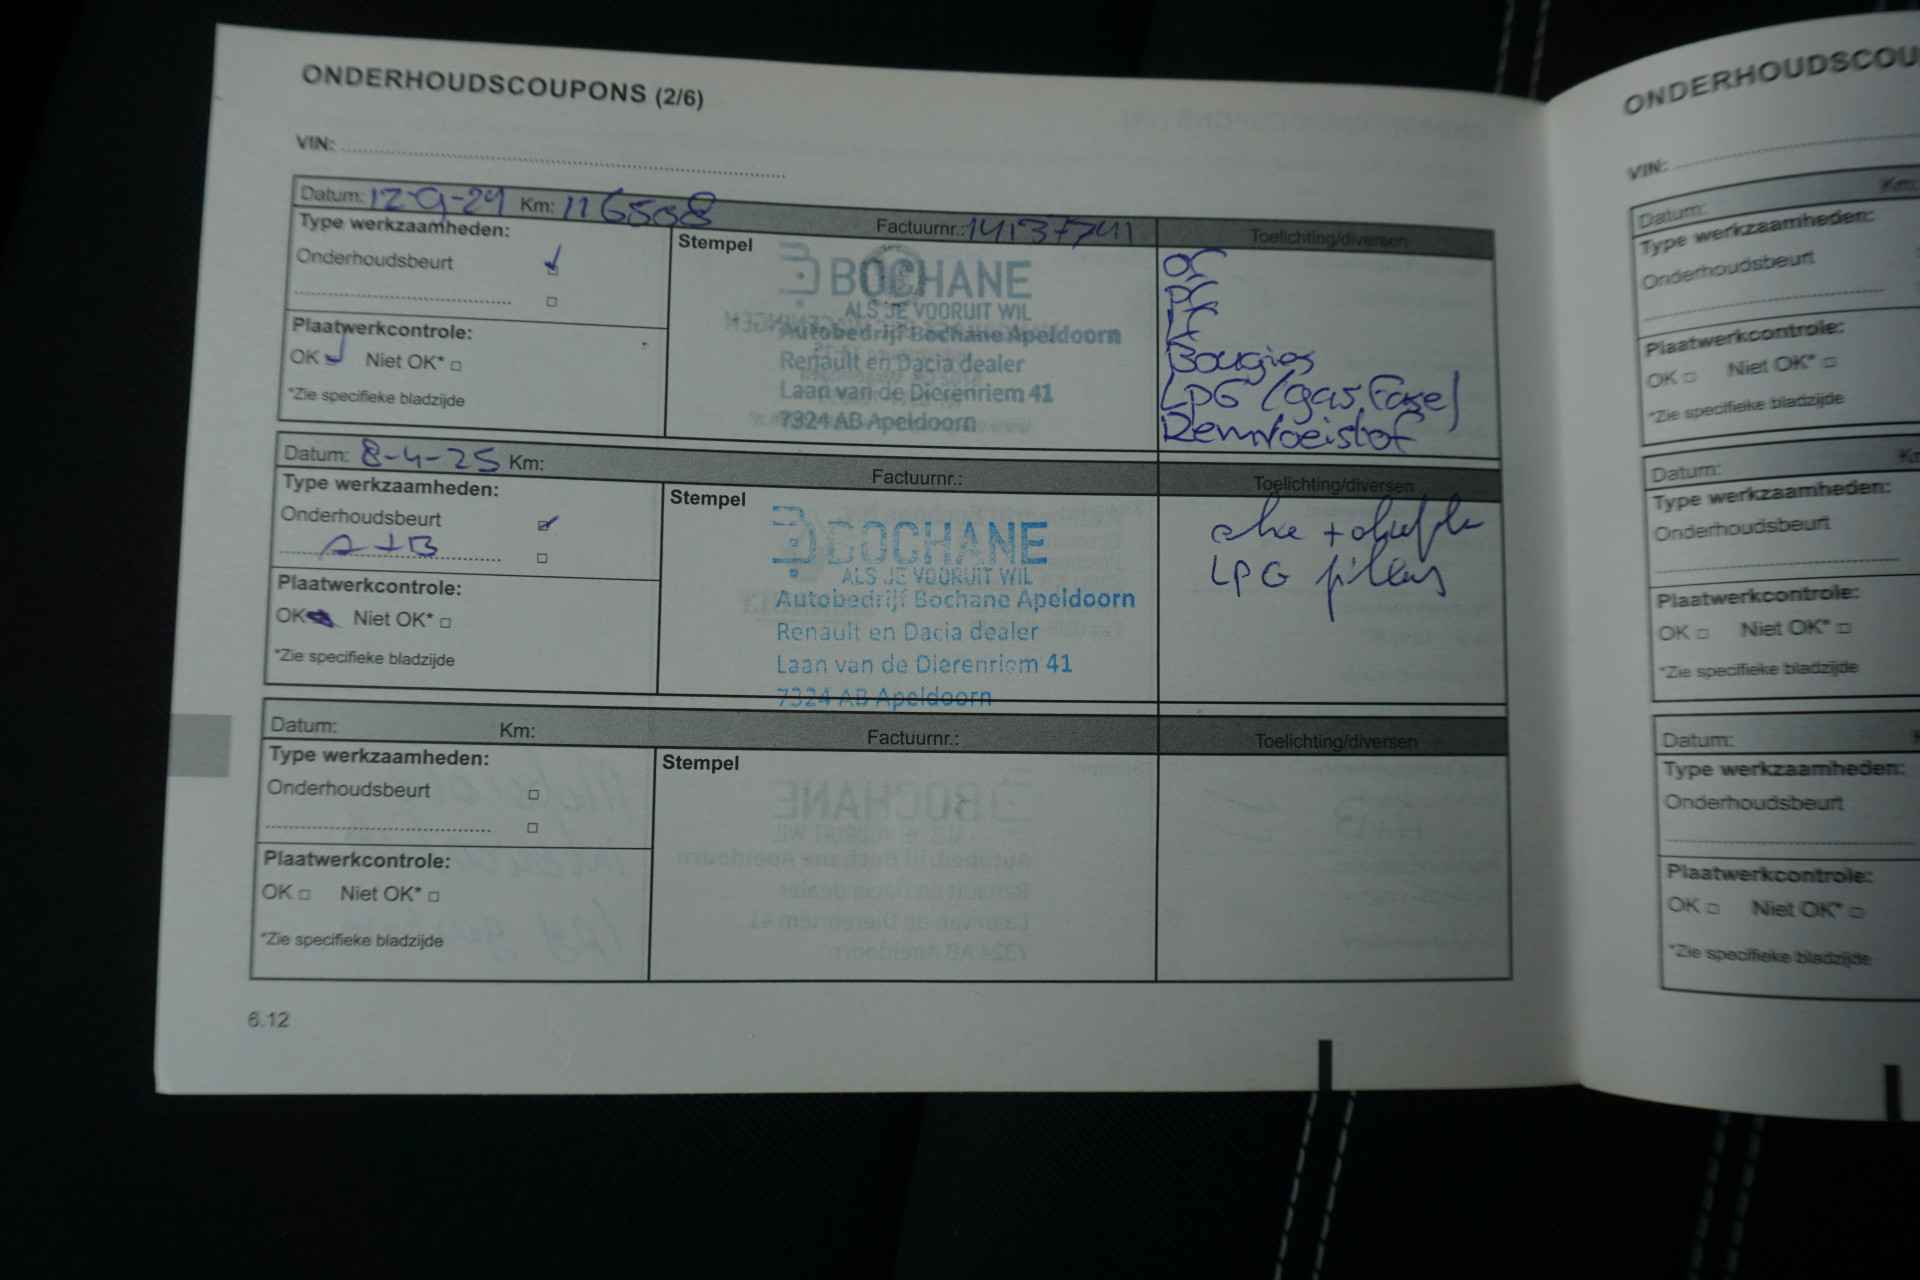 ONDERHOUDSCOUPONS (2/6)
VIN:
Datum: 12-9-24 Km: 116508 Factuurnr.: 14137741 Toelichting/diversen
Type werkzaamheden:
Onderhoudsbeurt
Plaatwerkcontrole:
OK Niet OK*
*Zie specifieke bladzijde
Stempel
BOCHANE
ALS JE VOORUIT WIL
Autobedrijf Bochane Apeldoorn
Renault en Dacia dealer
Laan van de Dierenriem 41
7324 AB Apeldoorn
OF
PF
LF
Bougies
LPG (gas Fase)
Remvloeistof
Datum: 8-4-25 Km: Factuurnr.: Toelichting/diversen
Type werkzaamheden:
Onderhoudsbeurt
A+B
Plaatwerkcontrole:
OK Niet OK*
*Zie specifieke bladzijde
Stempel
BOCHANE
ALS JE VOORUIT WIL
Autobedrijf Bochane Apeldoorn
Renault en Dacia dealer
Laan van de Dierenriem 41
7324 AB Apeldoorn
LPG
Datum: Km: Factuurnr.: Toelichting/diversen
Type werkzaamheden:
Onderhoudsbeurt
Plaatwerkcontrole:
OK Niet OK*
*Zie specifieke bladzijde
Stempel
6.12
ONDERHOUDSCOU
VIN:
Datum: Km:
Type werkzaamheden:
Onderhoudsbeurt
Plaatwerkcontrole:
OK Niet OK*
*Zie specifieke bladzijde
Datum:
Type werkzaamheden:
Onderhoudsbeurt
Plaatwerkcontrole:
OK Niet OK*
*Zie specifieke bladzijde
Datum:
Type werkzaamheden:
Onderhoudsbeurt
Plaatwerkcontrole:
OK Niet OK*
*Zie specifieke bladzijde